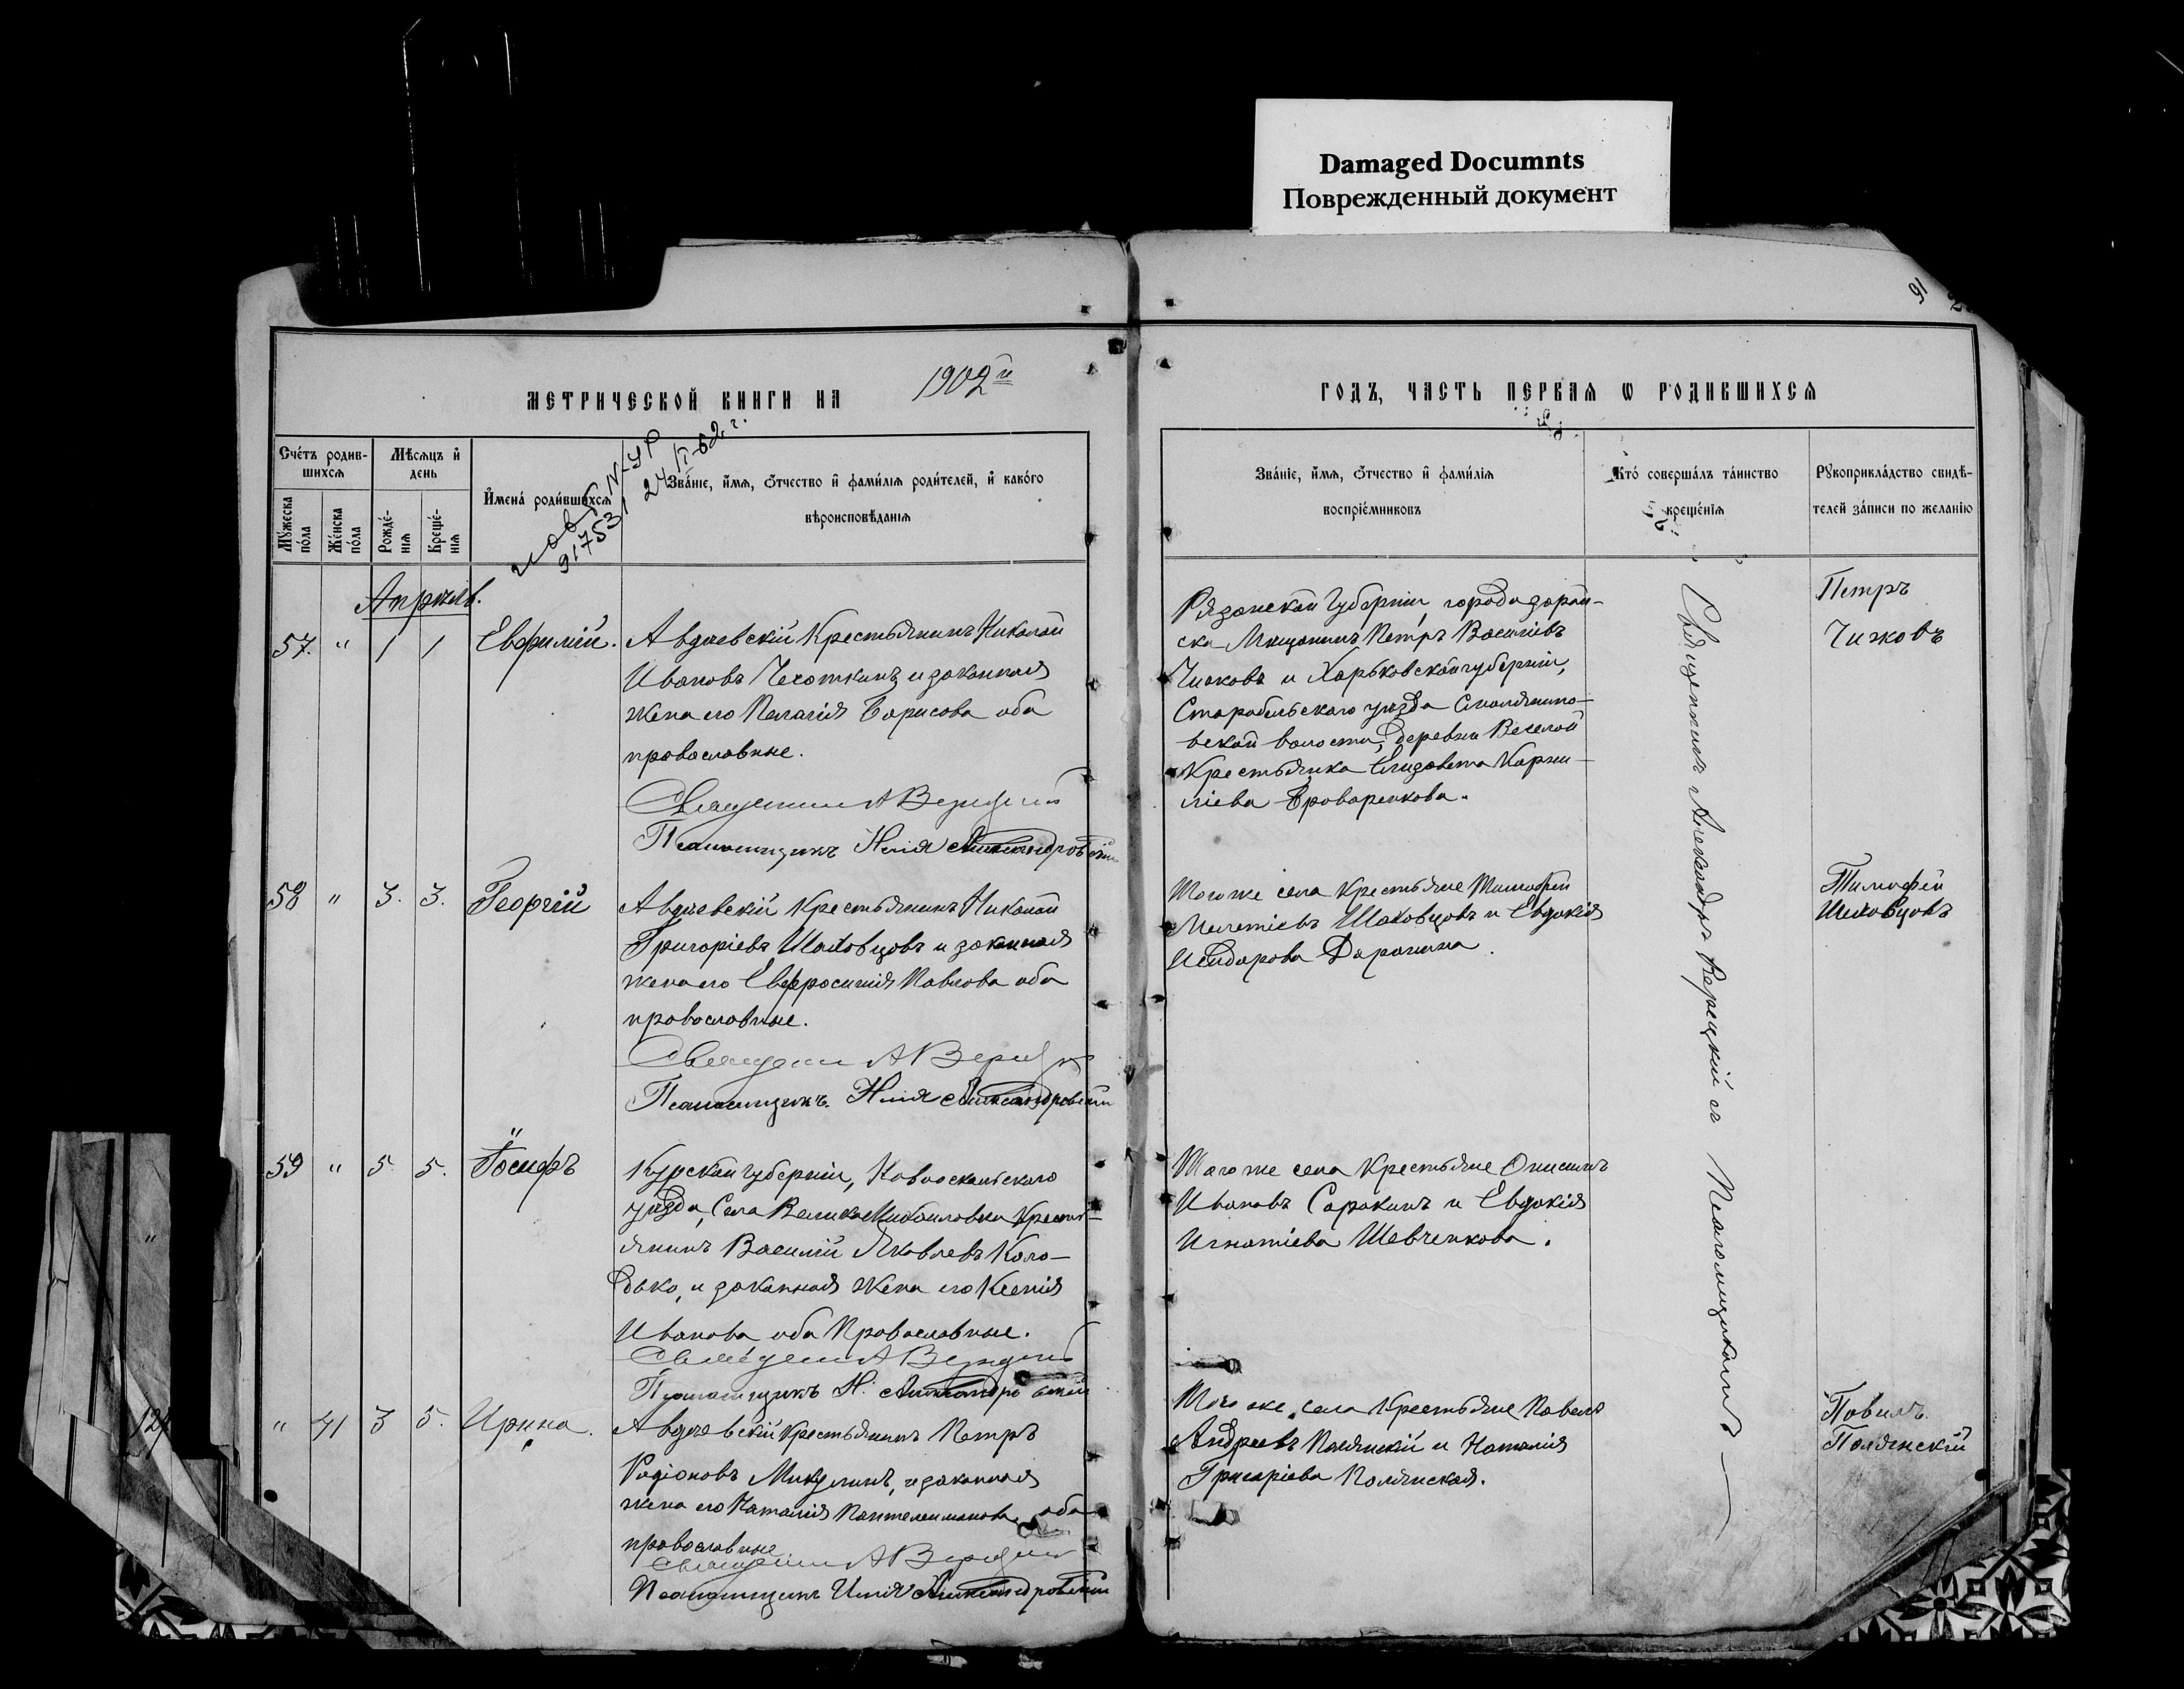 Damaged Documnts
Поврежденный документ
91
МЕТРИЧЕСКОЙ КНИГИ НА 1902й
ГОДЪ, ЧАСТЬ ПЕРВАЯ Ѡ РОДИВШИХСЯ
Счетъ родив-
шихся
Мужеска
пола
Женска
пола
Мѣсяцъ и
день
Рожде-
нія
Креще-
нія
Имена родившихся
Званіе, имя, отчество и фамилія родителей, и какого
вѣроисповѣданія
Званіе, имя, отчество и фамилія
воспріемниковъ
Кто совершалъ таинство
крещенія
Рукоприкладство свидѣ-
телей записи по желанію
91753
Апрѣль.
57. " 1 1 Евфимій.
Авдѣевскій Крестьянинъ Николай
Ивановъ Чехоткинъ и законная
жена его Пелагія Борисова оба
православные.
Священникъ А Верецкій
Псаломщикъ Илія Александровскій
Рязанской Губерніи, города Зарай-
ска Мѣщанинъ Петръ Василіевъ
Чижовъ и Харьковской губерніи,
Старобѣльскаго уѣзда
вской волости, деревни Веселой
Крестьянка Елизавета Корни-
ліева Броваренкова.
Петръ
Чижовъ
58 " 3. 3. Георгій
Авдѣевскій Крестьянинъ Николай
Григоріевъ Шаховцовъ и законная
жена его Евфросинія Павлова оба
православные.
Священникъ А Верецкій
Псаломщикъ Илія Александровскій
Того же села Крестьяне Тимофей
Мелетіевъ Шаховцовъ и Евдокія
Исидорова Доронина.
Тимофей
Шаховцовъ
59 " 5. 5. Іосифъ
Курской Губерніи, Новооскольскаго
уѣзда, Села Велико Михайловки Кресть-
янинъ Василій Яковлевъ Коло-
дько, и законная жена его Ксенія
Иванова оба Православные.
Священникъ А Верецкій
Псаломщикъ И. Александровскій
Того же села Крестьяне Онисимъ
Ивановъ Сорокинъ и Евдокія
Игнатіева Шевченкова.
" 41 3 5. Ирина.
Авдѣевскій Крестьянинъ Петръ
Родіоновъ Микулинъ, и законная
жена его Наталія Пантелеимонова оба
православные
Священникъ А Верецкій
Псаломщикъ Илія Александровскій
Того же села Крестьяне Павелъ
Андреевъ Полянскій и Наталія
Григоріева Полянская.
Павелъ
Полянскій
Священникъ Александръ Верецкій съ Псаломщикомъ